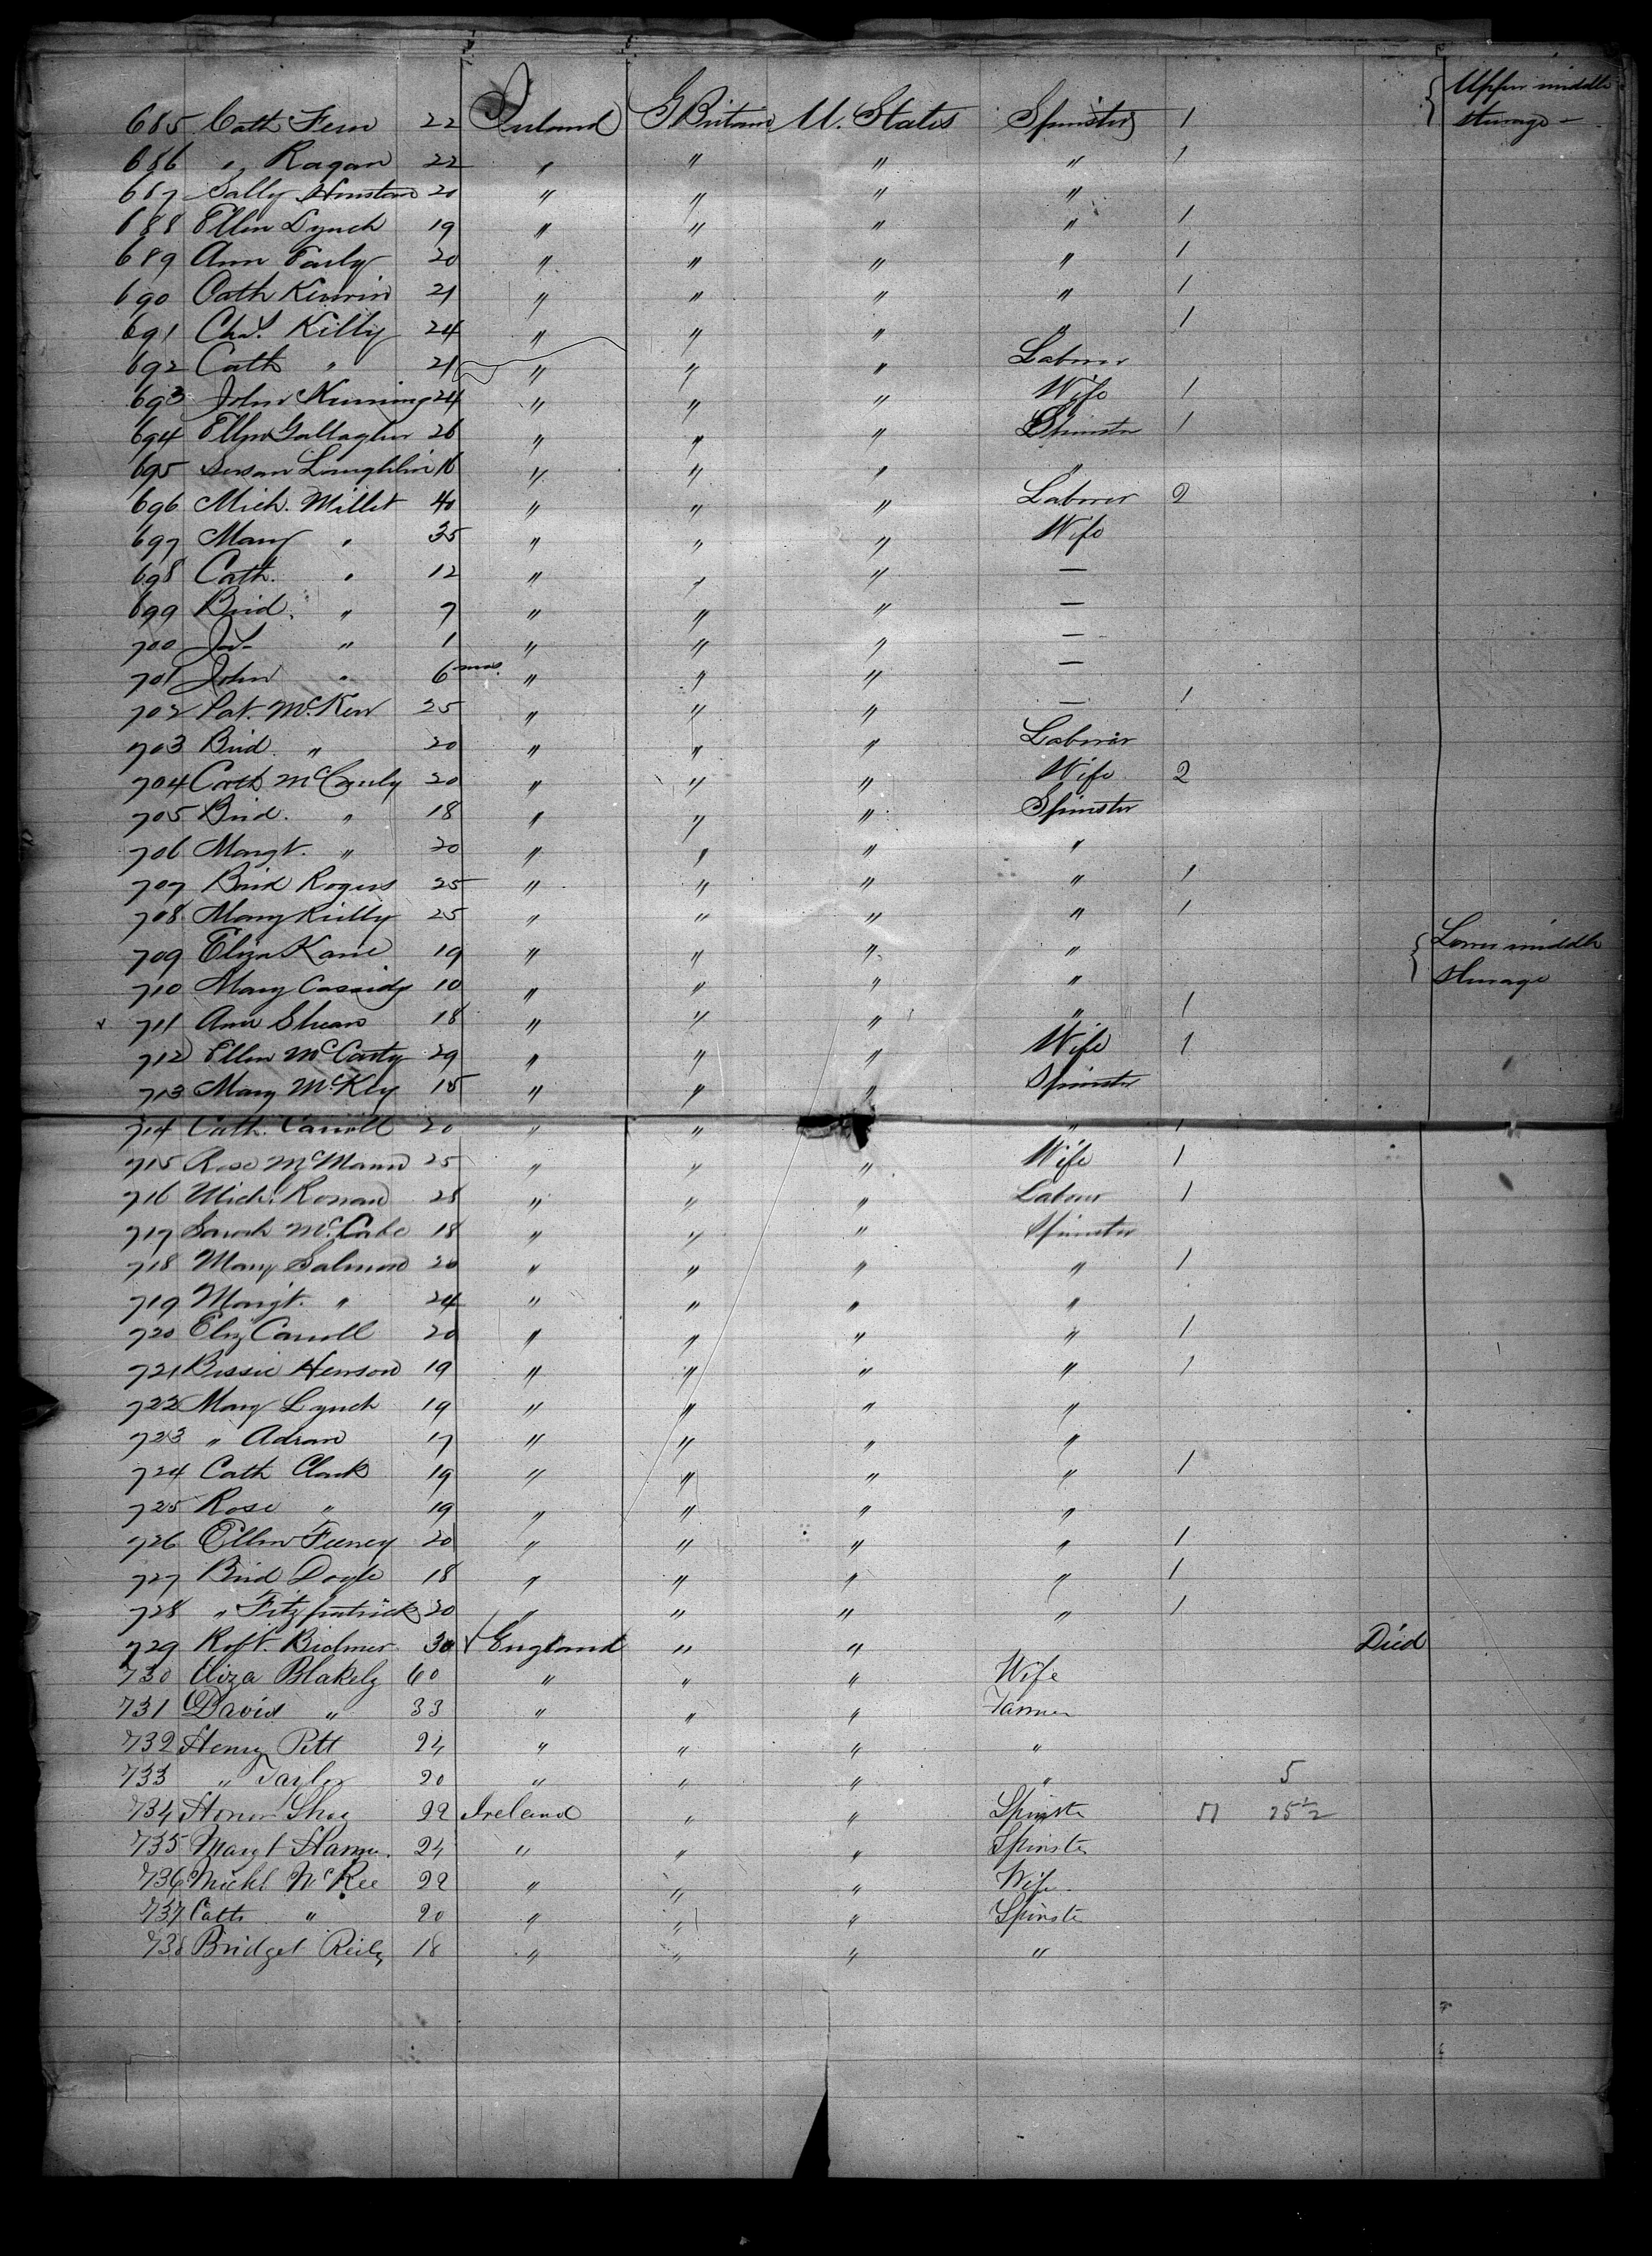 685 Cath Fern 22 Ireland GBritain U. States Spinster 1 { Upper middle
steerage -
686 " Ragan 22 " " " " 1
687 Sally 20 " " " "
688 Ellen Lynch 19 " " " " 1
689 Ann Early 20 " " " " 1
690 Cath Kerwin 21 " " " " 1
691 Chas. Killy 24 " " " " 1
692 Cath " 21 " " " Laborer
693 John 24 " " " Wife 1
694 Ellen Gallagher 26 " " " Spinster 1
695 Susan Loughlin 16 " " " "
696 Mich. Millet 40 " " " Laborer 2
697 Mary " 35 " " " Wife
698 Cath. " 12 " " " —
699 Brid. " 7 " " " —
700 Jas. " 1 " " " —
701 John " 6 mos. " " " —
702 Pat. McKen 25 " " " — 1
703 Brid. " 20 " " " Laborer
704 Cath 20 " " " Wife 2
705 Brid. " 18 " " " Spinster
706 Margt. " 20 " " " "
707 Brid Rogers 25 " " " " 1
708 Mary Reilly 25 " " " " 1
709 Eliza Kane 19 " " " " { Lower middle
710 Mary Cassidy 10 " " " " steerage
711 Ann Shean 18 " " " " 1
712 Ellen McCarty 29 " " " Wife 1
713 Mary McKey 18 " " " Spinster
714 Cath. Carroll 20 " " " 1
715 Rose McMann 25 " " " Wife 1
716 Mich. Ronan 28 " " " Laborer 1
717 Sarah McCabe 18 " " " Spinster
718 Mary Salmon 20 " " " " 1
719 Margt. " 24 " " " "
720 Eliz Carroll 20 " " " " 1
721 Bessie Henson 19 " " " " 1
722 Mary Lynch 19 " " " "
723 " Adram 17 " " " "
724 Cath Clark 19 " " " " 1
725 Rose " 19 " " " "
726 Ellen Feeney 20 " " " " 1
727 Brid Doyle 18 " " " " 1
728 " Fitzpatrick 20 " " " " 1
729 Robt. Bidmer 30 England " " Died
730 Eliza Blakely 60 " " " Wife
731 David " 33 " " " Farmer
732 Henry Pitt 24 " " " "
733 " Taylor 20 " " " " 5
734 Honor Shay 22 Ireland " " Spinster 51 25 1/2
735 Margt 24 " " " Spinster
736 Michl McKee 22 " " " Wife
737 Cath " 20 " " " Spinste
738 Bridget Reily 18 " " " "